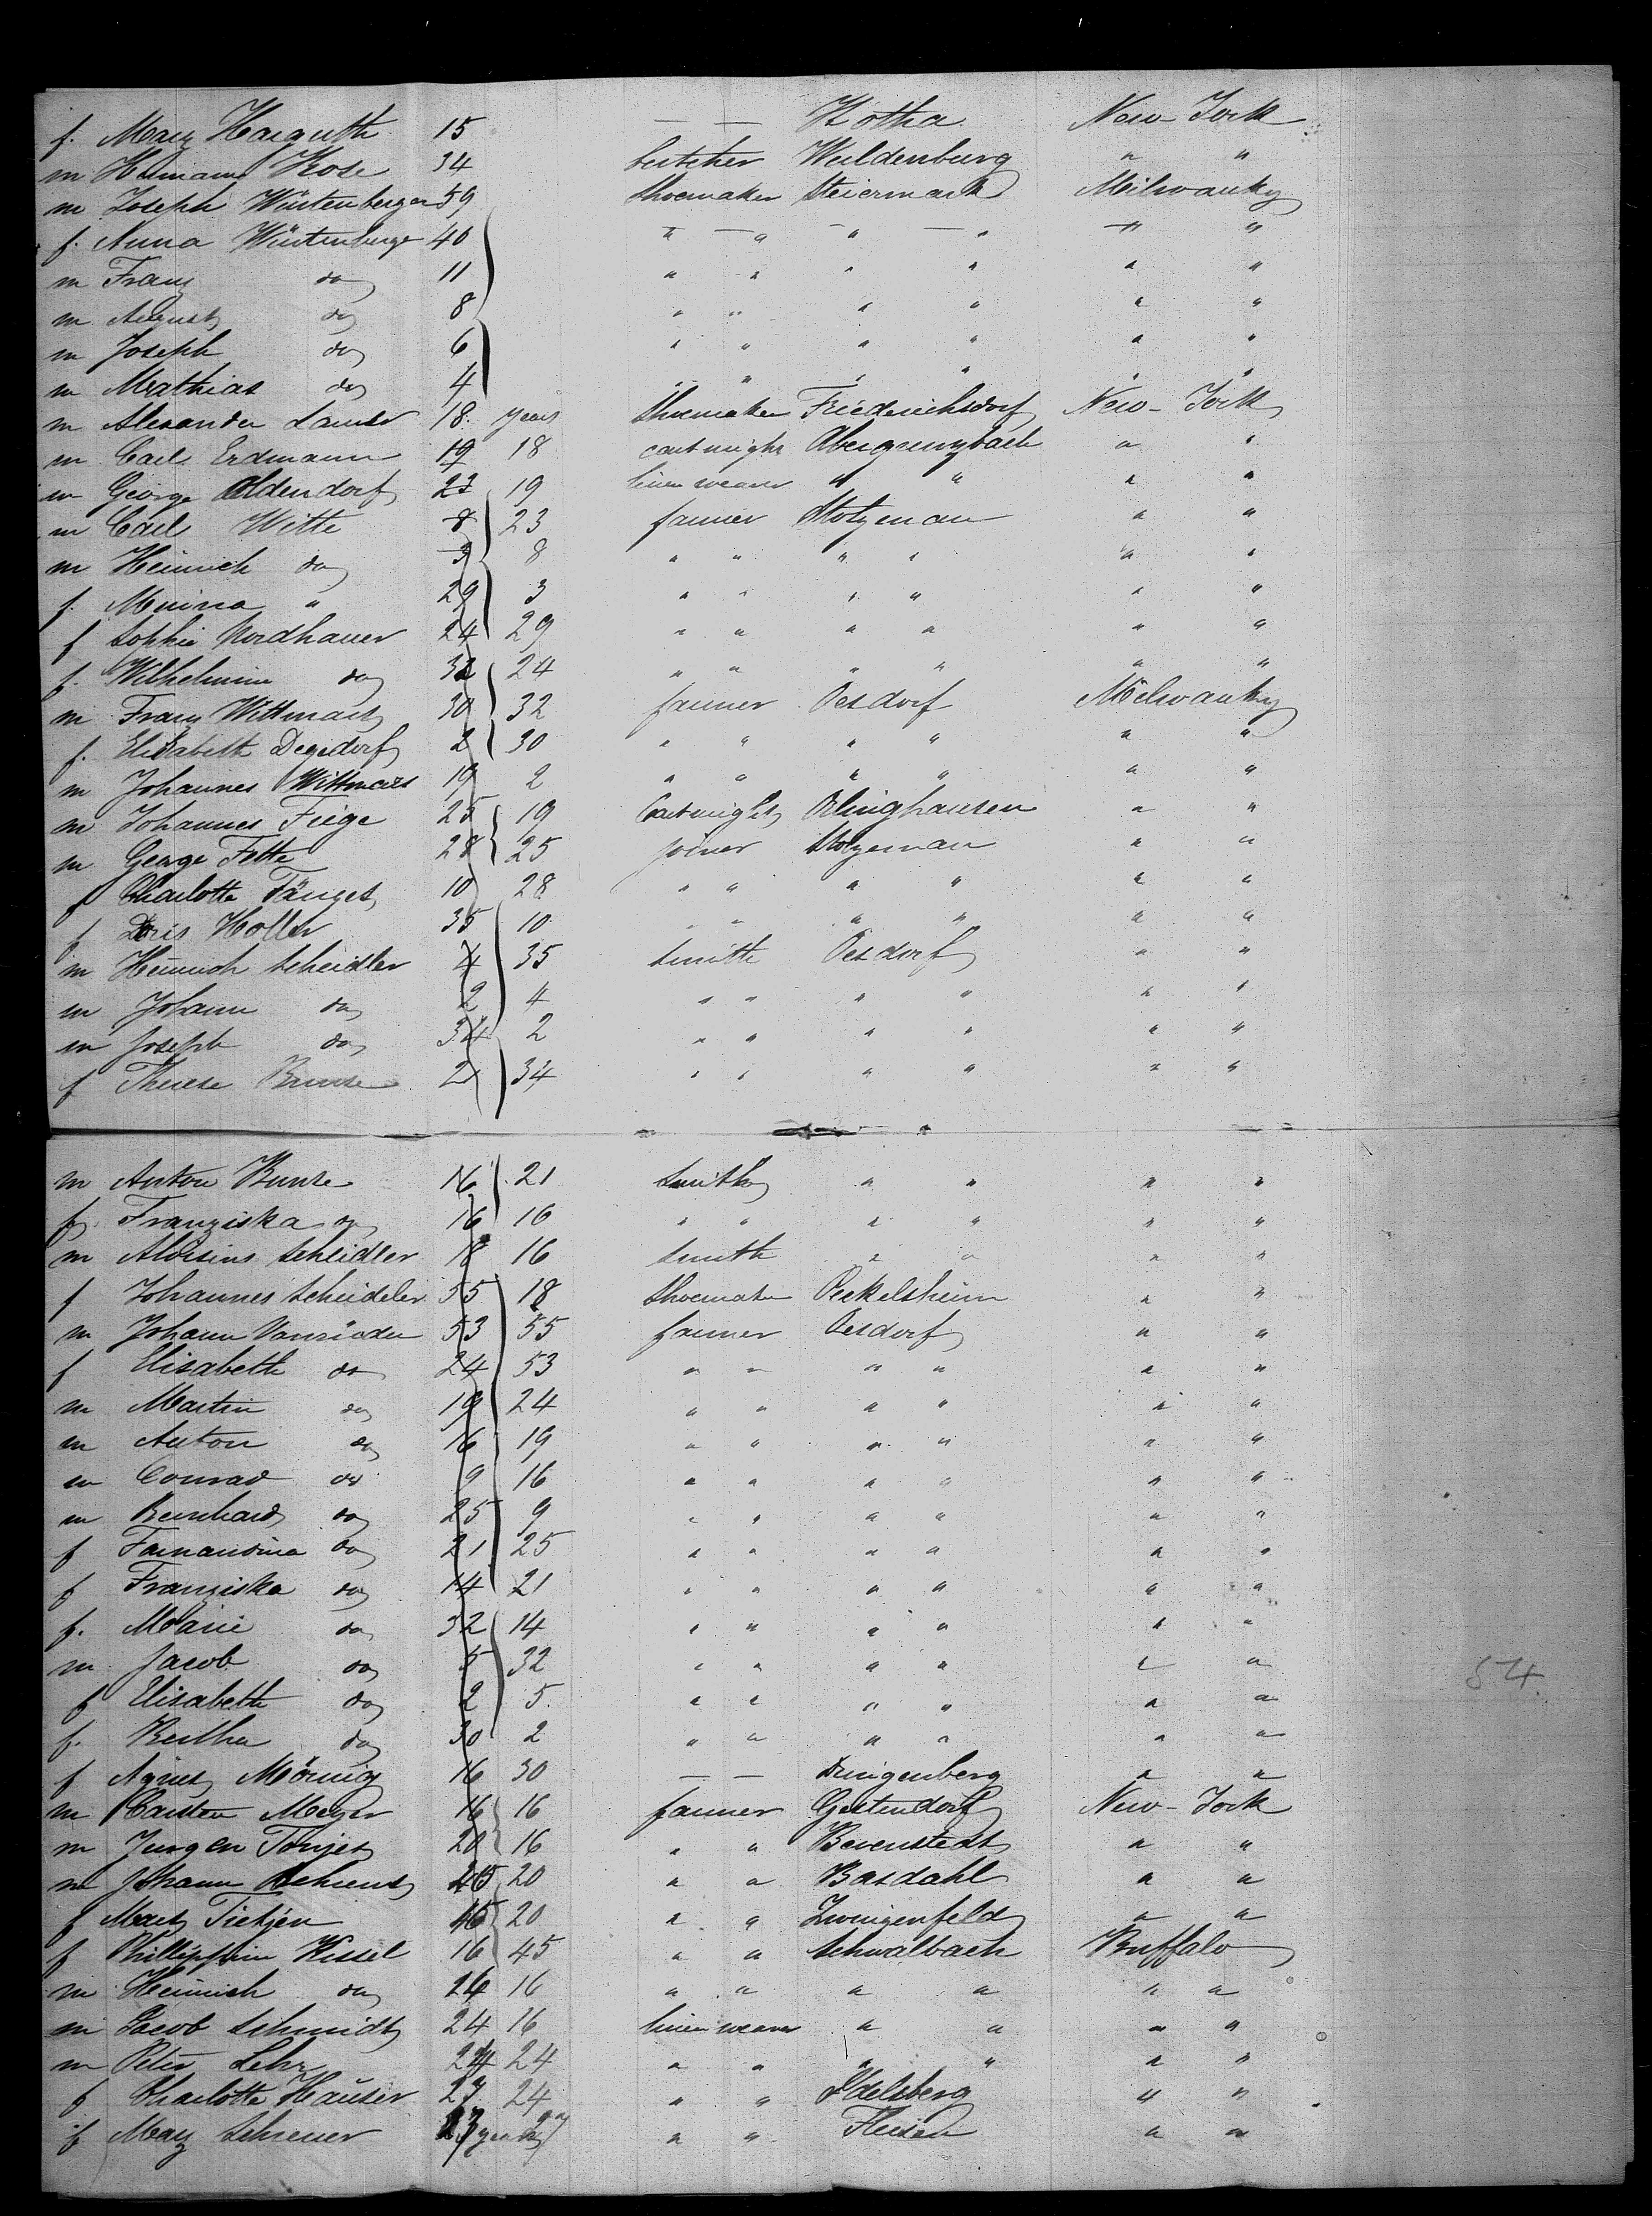 f. Mary Harguth 15 — — Kotha New-York
m Hermann Kose 34 butcher Waldenburg " "
m Joseph Würtenberger 59 Shoemaker Steiermark Milwauky
f. Anna Würtenberger 40 " " " " " "
m Franz do 11 " " " " " "
m August do 8 " " " " " "
m Joseph do 6 " " " " " "
m Mathias do 4 " " " " " "
m Alexander 18. years Shoemaker Friederichsdorf New-York
m Carl Erdmann 19 18 cartwright " "
m George Oldendorf 23 19 linen weaver " " " "
m Carl Witte 8 23 farmer Stolzenau " "
m Heinrich do 3 8 " " " " " "
f. Minna " 29 3 " " " " " "
f Sophie Nordhauer 24 29 " " " " " "
f. Wilhelmine do 32 24 " " " " " "
m Franz Wittmars 30 32 farmer Oesdorf Milwauky
f. Elisabeth Degedorf 2 30 " " " " " "
m Johannes Wittmars 19 2 " " " " " "
m Johannes Fiege 25 19 Cartwright Orlinghausen " "
m George Fette 28 25 joiner Stolzenau " "
f Charlotte Tänges 10 28 " " " " " "
f Doris Holler 35 10 " " " " " "
m Heinrich Scheidler 4 35 Smith Oesdorf " "
m Johann do 2 4 " " " " " "
m Joseph do 34 2 " " " " " "
f Therese Bunse 21 34 " " " " " "
m Anton Bunse 16 21 Smith " " " "
f. Franziska do 16 16 " " " " " "
m Aloisius Scheidler 18 16 Smith " " " "
f Johannes Scheideler 55 18 Shoemaker Peckelsheim " "
m Johann Vansieden 53 55 farmer Oesdorf " "
f Elisabeth do 24 53 " " " " " "
m Martin do 19 24 " " " " " "
m Anton do 16 19 " " " " " "
m Conrad do 9 16 " " " " " "
m Bernhard do 25 9 " " " " " "
f Fernandina do 21 25 " " " " " "
f Franziska do 14 21 " " " " " "
f. Marie do 32 14 " " " " " "
m Jacob do 5 32 " " " " " "
f Elisabeth do 2 5. " " " " " "
f. Bertha do 30 2 " " " " " "
f Agnes Mönnig 16 30 — — Dringenberg " "
m Carsten Meyer 16 16 farmer Geestendorf New-York
m Jurgen Tonjes 20 16 " " Bevenstedt " "
m Johann Behrens 45 20 " " Basdahl " "
f Mary Tietjen 45 20 " " Zwingenfeld " "
f Phillippine Kissel 16 45 " " Schwalbach Buffalo
m Heinrich do 24 16 " " " " " "
m Jacob Schmidt 24 16 linen weaver " " " "
m Peter Lehr 24 24 " " " " " "
f Charlotte Häuser 27 24 " " Idelsberg " "
f Mary Schreuer 23 years 27 " " " "
54.